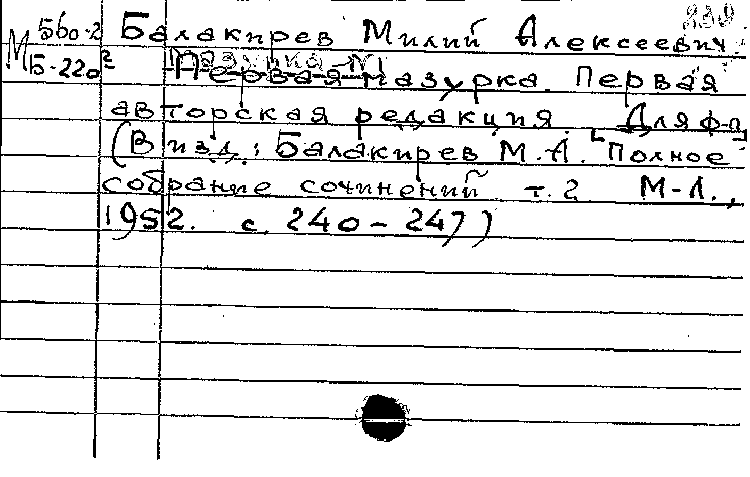 239
М 560-2 Балакирев Милий Алексеевич.
Б-220² Мазурка №1
Первая мазурка. Первая
авторская редакция. Для ф-п
(В изд.: Балакирев М.А. Полное
собрание сочинений т. 2 М-Л.,
1952. с. 240-247)